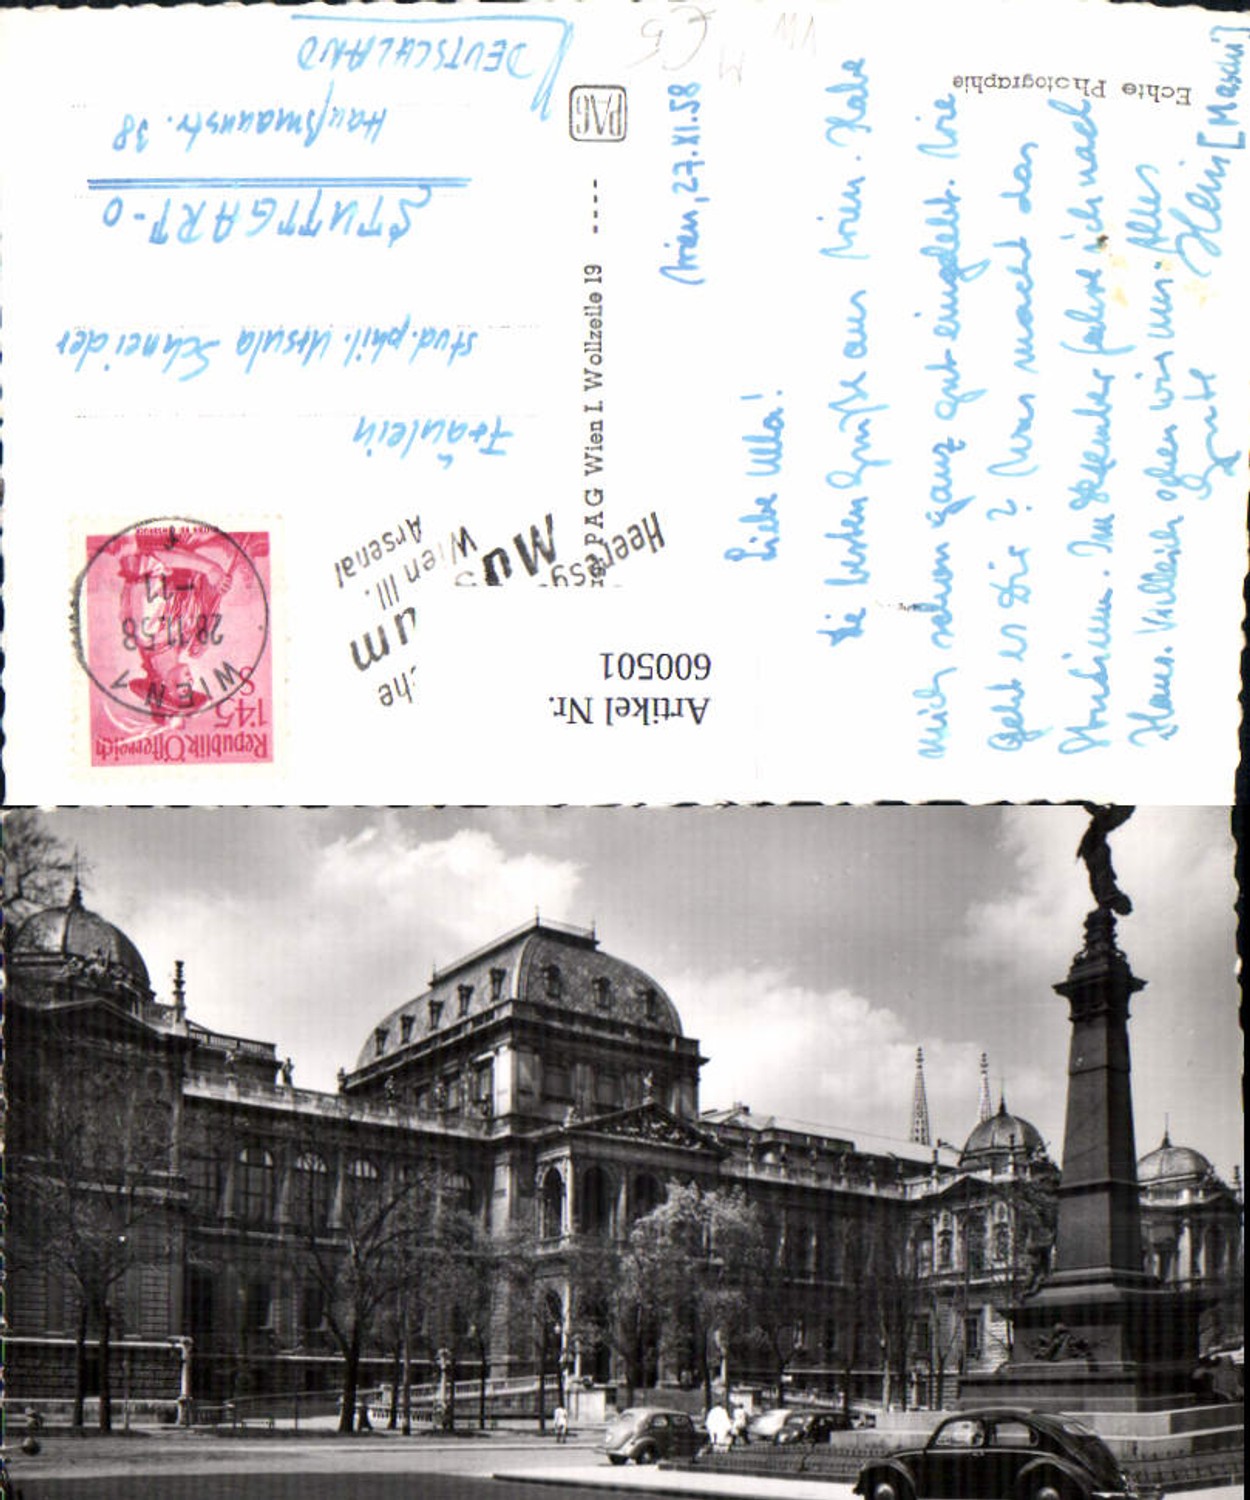 Echte Photographie
Wien, 27.XI.58
Liebe Ulla!
Die besten Grüße aus Wien. Habe
mich schon ganz gut eingelebt. Wie
geht es Dir? Was macht das
Studium. Im Dezember fahre ich nach
Haus. Vielleicht sehen wir uns. Alles
Gute Heini [Maschi]
PAG
PAG Wien I. Wollzeile 19
Republik Österreich
1'45
S
WIEN 1
28.11.58
-11
Heeresg
che
Mus
um
Wien III.
Arsenal
Fräulein
stud. phil. Ursula Schneider
STUTTGART-O
Haußmannstr. 38
DEUTSCHLAND
Artikel Nr.
600501